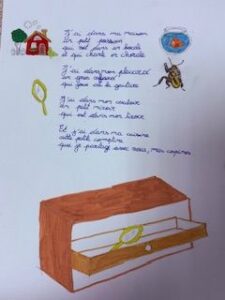 J'ai dans ma maison
Un petit poisson
qui est dans un bocal
et qui chante en chorale
J'ai dans mon placard
un gros
qui joue de la guitare
J'ai dans mon couloir
Un petit miroir
qui est dans mon tiroir
Et j'ai dans ma cuisine
cette petite comptine
que je partage avec vous, mes copines